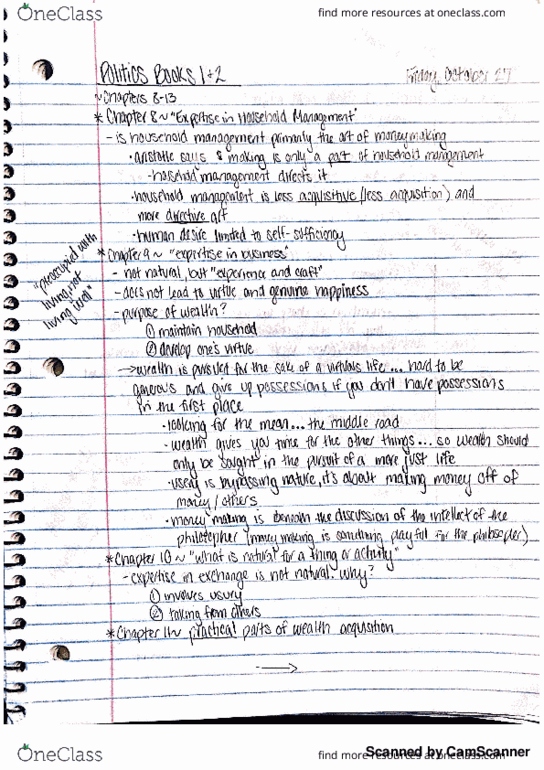 OneClass
find more resources at oneclass.com
Politics Books 1+2
Friday, October 27
~Chapters 8-13
* Chapter 8 ~ "Expertise in Household Management"
- is household management primarily the art of moneymaking
• aristotle says $ making is only a part of household management
- household management directs it
• household management is less acquisitive (less acquisition) and
more directive art
• human desire limited to self-sufficiency
* Chapter 9 ~ "expertise in business"
"preoccupied with
living, not
living well"
- not natural, but "experience and craft"
- does not lead to virtue and genuine happiness
- purpose of wealth?
① maintain household
② develop one's virtue
→ wealth is pursued for the sake of a virtuous life... hard to be
generous and give up possessions if you don't have possessions
in the first place
• looking for the mean... the middle road
• wealth gives you time for the other things... so wealth should
only be sought in the pursuit of a more just life
• usery is bypassing nature, it's about making money off of
money/others
• money making is beneath the discussion of the intellect of the
philosopher (money making is something playful for the philosopher)
* Chapter 10 ~ "what is natural for a thing or activity"
- expertise in exchange is not natural. why?
① involves usury
② taking from others
* Chapter 11 ~ practical parts of wealth acquisition
→
OneClass
find more resources at oneclass.com
Scanned by CamScanner